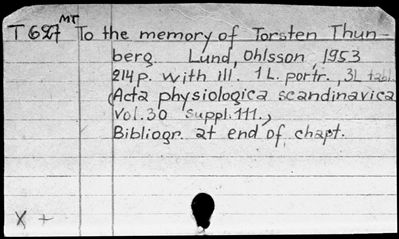 MT
T 627 To the memory of Torsten Thun-
berg. Lund, Ohlsson, 1953
214 p. with ill. 1 L. portr., 3L tabl.
(Acta physiologica scandinavica
Vol. 30 suppl. 111.)
Bibliogr. at end of chapt.
X +